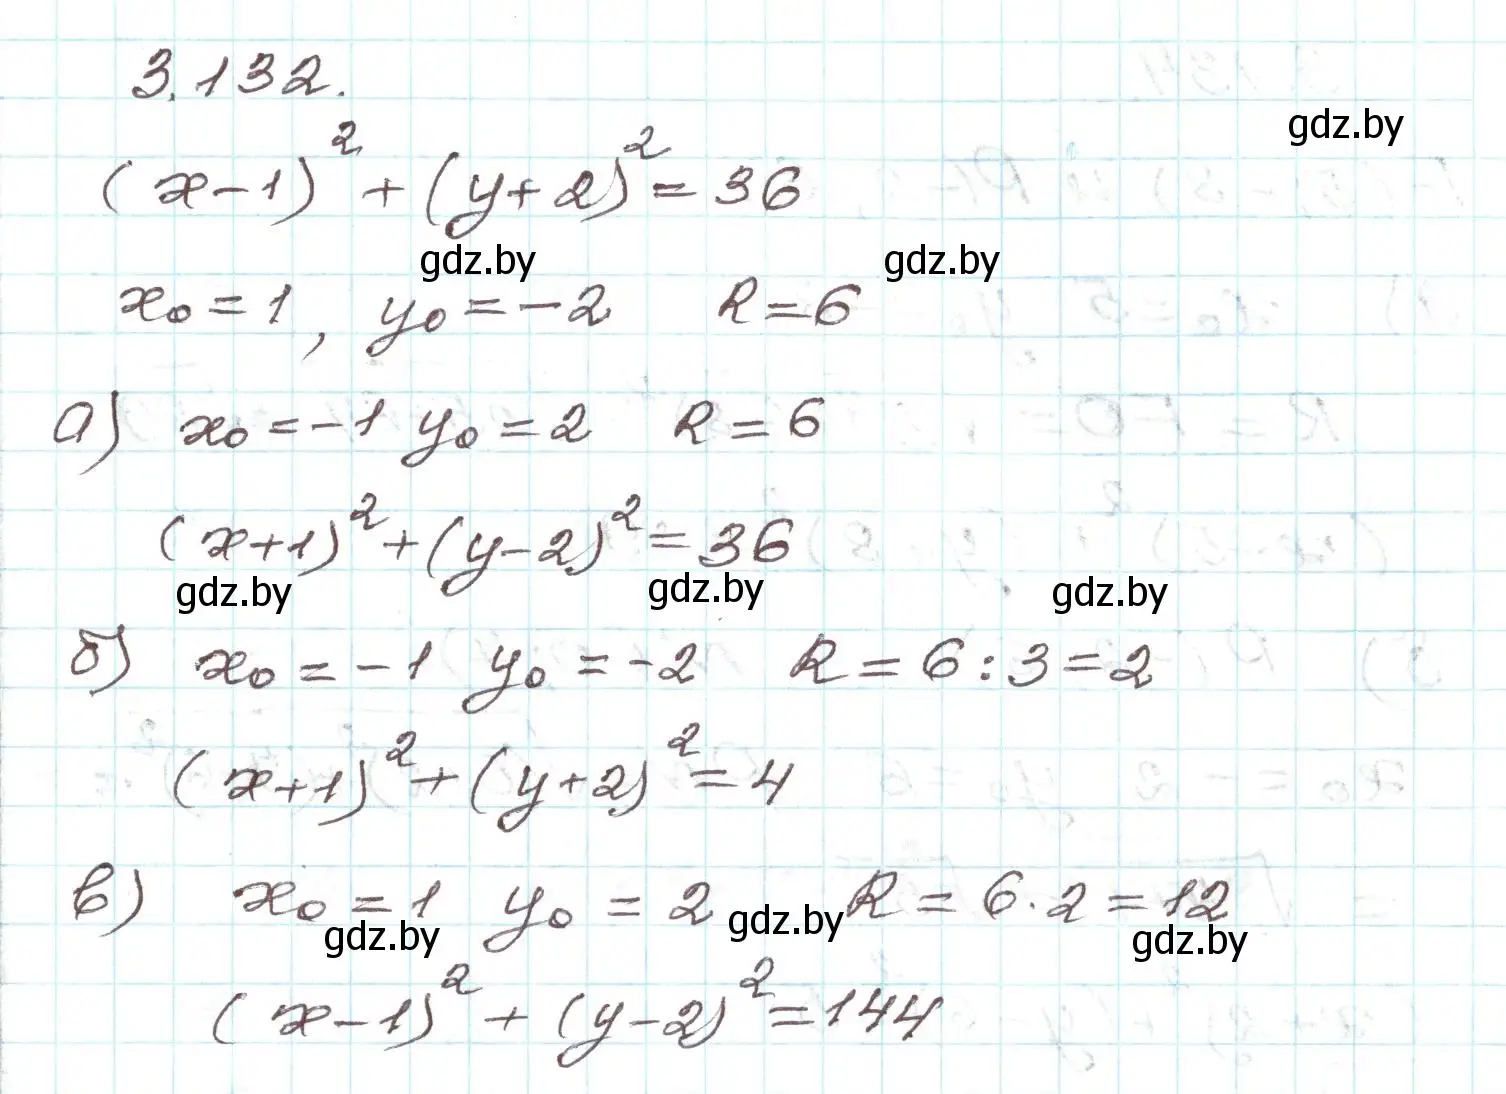 3.132.
gdz.by
(x-1)² + (y+2)² = 36
gdz.by gdz.by
x₀ = 1, y₀ = -2 R = 6
а) x₀ = -1 y₀ = 2 R = 6
(x+1)² + (y-2)² = 36
gdz.by gdz.by gdz.by
б) x₀ = -1 y₀ = -2 R = 6 : 3 = 2
(x+1)² + (y+2)² = 4
в) x₀ = 1 y₀ = 2 R = 6 · 2 = 12
gdz.by gdz.by gdz.by
(x-1)² + (y-2)² = 144